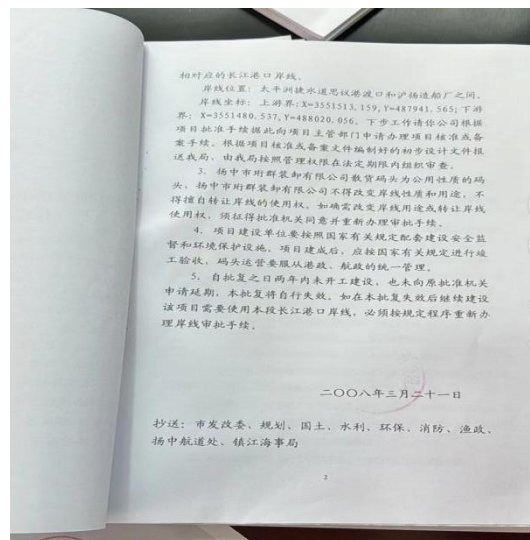 相对应的长江港口岸线。
岸线位置：太平洲捷水道思议港渡口和沪扬造船厂之间。
岸线坐标：上游界：X=3551513,159,Y=487941,565；下游
界：X=3551480.537,Y=488020.056。下步工作请你公司根据
项目批准手续据此向项目主管部门申请办理项目核准或备
案手续。根据项目核准或备案文件编制好的初步设计文件报
送我局，由我局按照管理权限在法定期限内组织审查。
3、扬中市珩群装卸有限公司散货码头为公用性质的码
头，扬中市珩群装卸有限公司不得改变岸线性质和用途，不
得擅自转让岸线的使用权。如确需改变岸线用途或转让岸线
使用权，须征得批准机关同意并重新办理审批手续。
4、项目建设单位要按照国家有关规定配套建设安全监
督和环境保护设施。项目建成后，应按国家有关规定进行竣
工验收，码头运营要服从港政、航政的统一管理。
5、自批复之日两年内未开工建设，也未向原批准机关
申请延期，本批复将自行失效。如在本批复失效后继续建设
该项目需要使用本段长江港口岸线，必须按规定程序重新办
理岸线审批手续。
二〇〇八年三月二十一日
抄送：市发改委、规划、国土、水利、环保、消防、渔政、
扬中航道处、镇江海事局
2